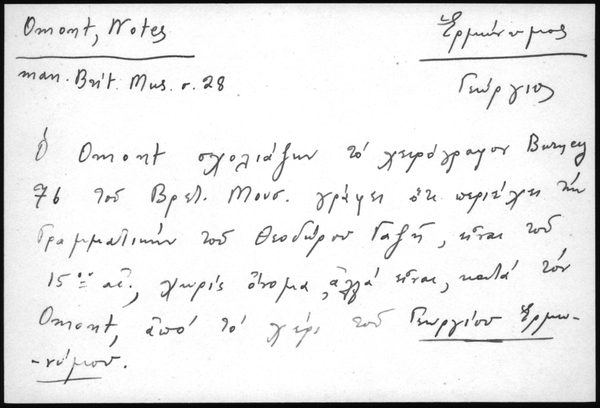 Omont, Notes
Ἑρμώνυμος
man. Brit. Mus. σ. 28
Γεώργιος
Ὁ Omont σχολιάζων τό χειρόγραφον Burney
76 τοῦ Βρετ. Μουσ. γράφει ὅτι περιέχει τήν
Γραμματικήν τοῦ Θεοδώρου Γαζῆ, εἶναι τοῦ
15ου αἰ., χωρίς ὄνομα, ἀλλά εἶναι, κατά τόν
Omont, ἀπό τό χέρι τοῦ Γεωργίου Ἑρμω-
-νύμου.